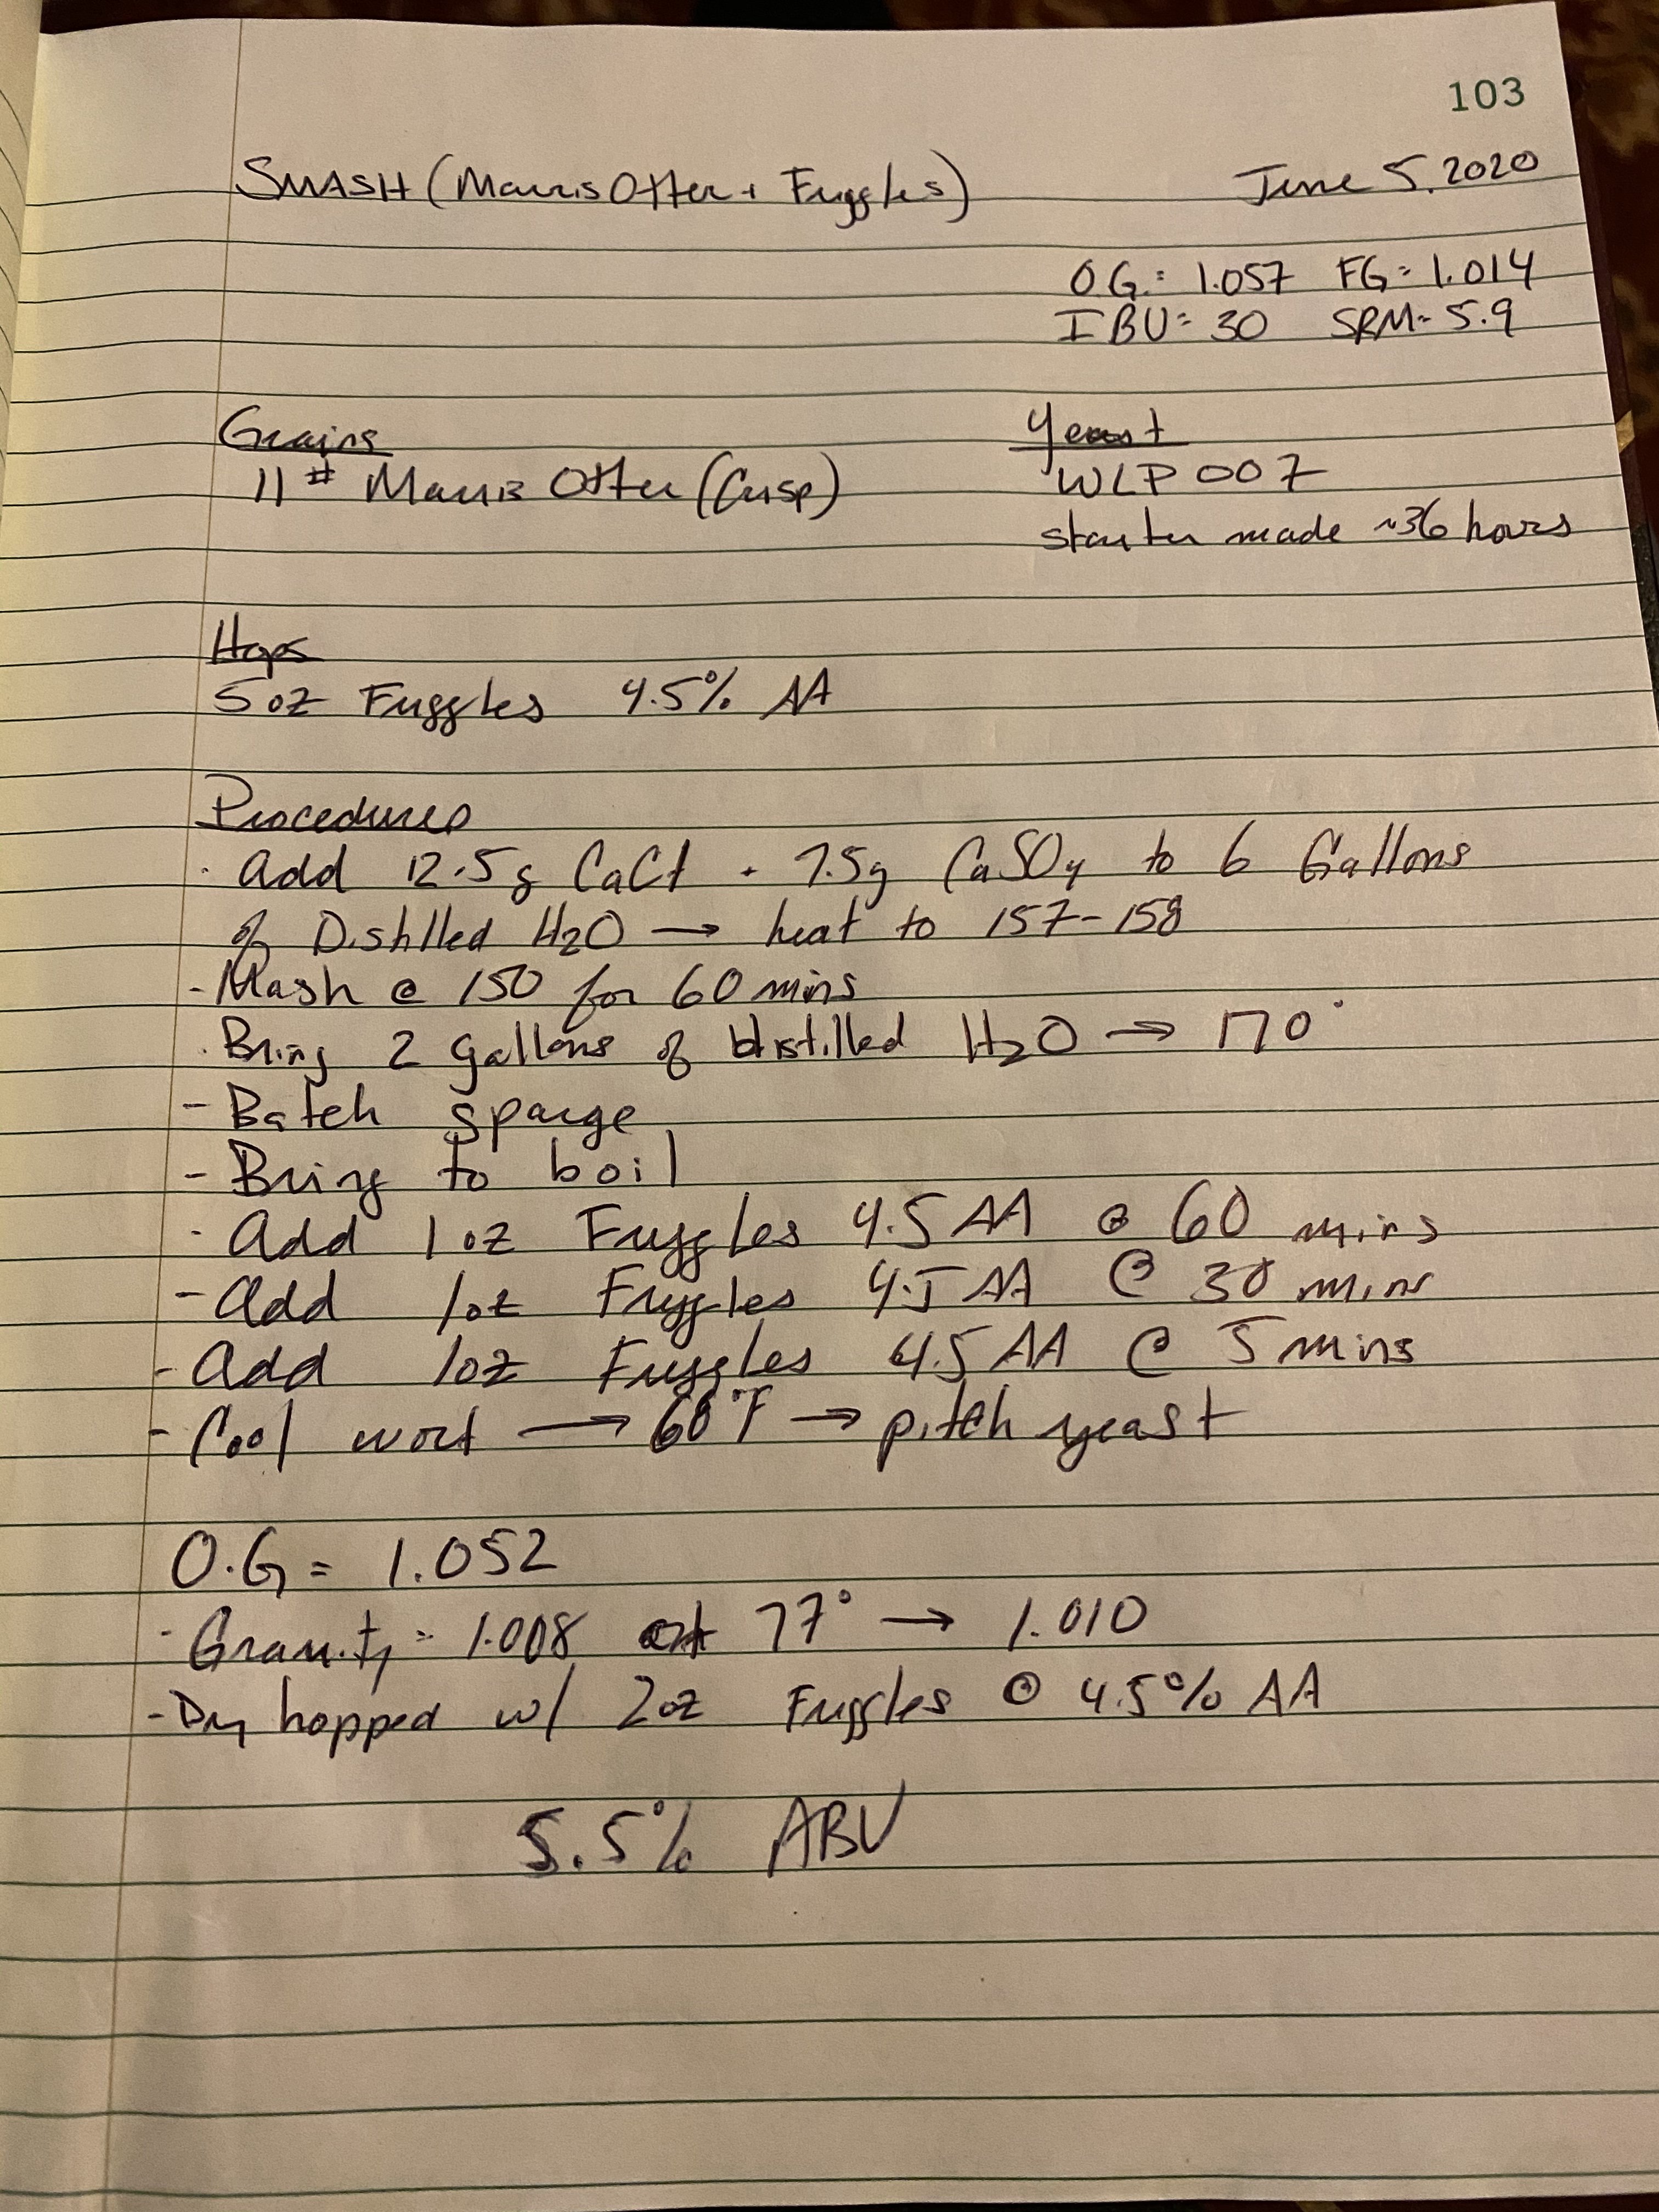 103
SMASH (Marris Otter + Fuggles) June 5, 2020
O.G. = 1.057 FG = 1.014
IBU = 30 SRM = 5.9
Grains Yeast
11# Marris Otter (Crisp) WLP 007
starter made ~36 hours
Hops
5 oz Fuggles 4.5% AA
Procedures
· Add 12.5g CaCl + 7.5g CaSO4 to 6 Gallons
of Distilled H2O → heat to 157-158
- Mash @ 150 for 60 mins
· Bring 2 gallons of distilled H2O → 170°
- Batch sparge
- Bring to boil
- Add 1 oz Fuggles 4.5 AA @ 60 mins
- Add 1oz Fuggles 4.5 AA @ 30 mins
- Add 1oz Fuggles 4.5 AA @ 5 mins
- Cool wort → 68°F → pitch yeast
O.G = 1.052
- Gravity = 1.008 at 77° → 1.010
- Dry hopped w/ 2oz Fuggles @ 4.5% AA
5.5% ABV